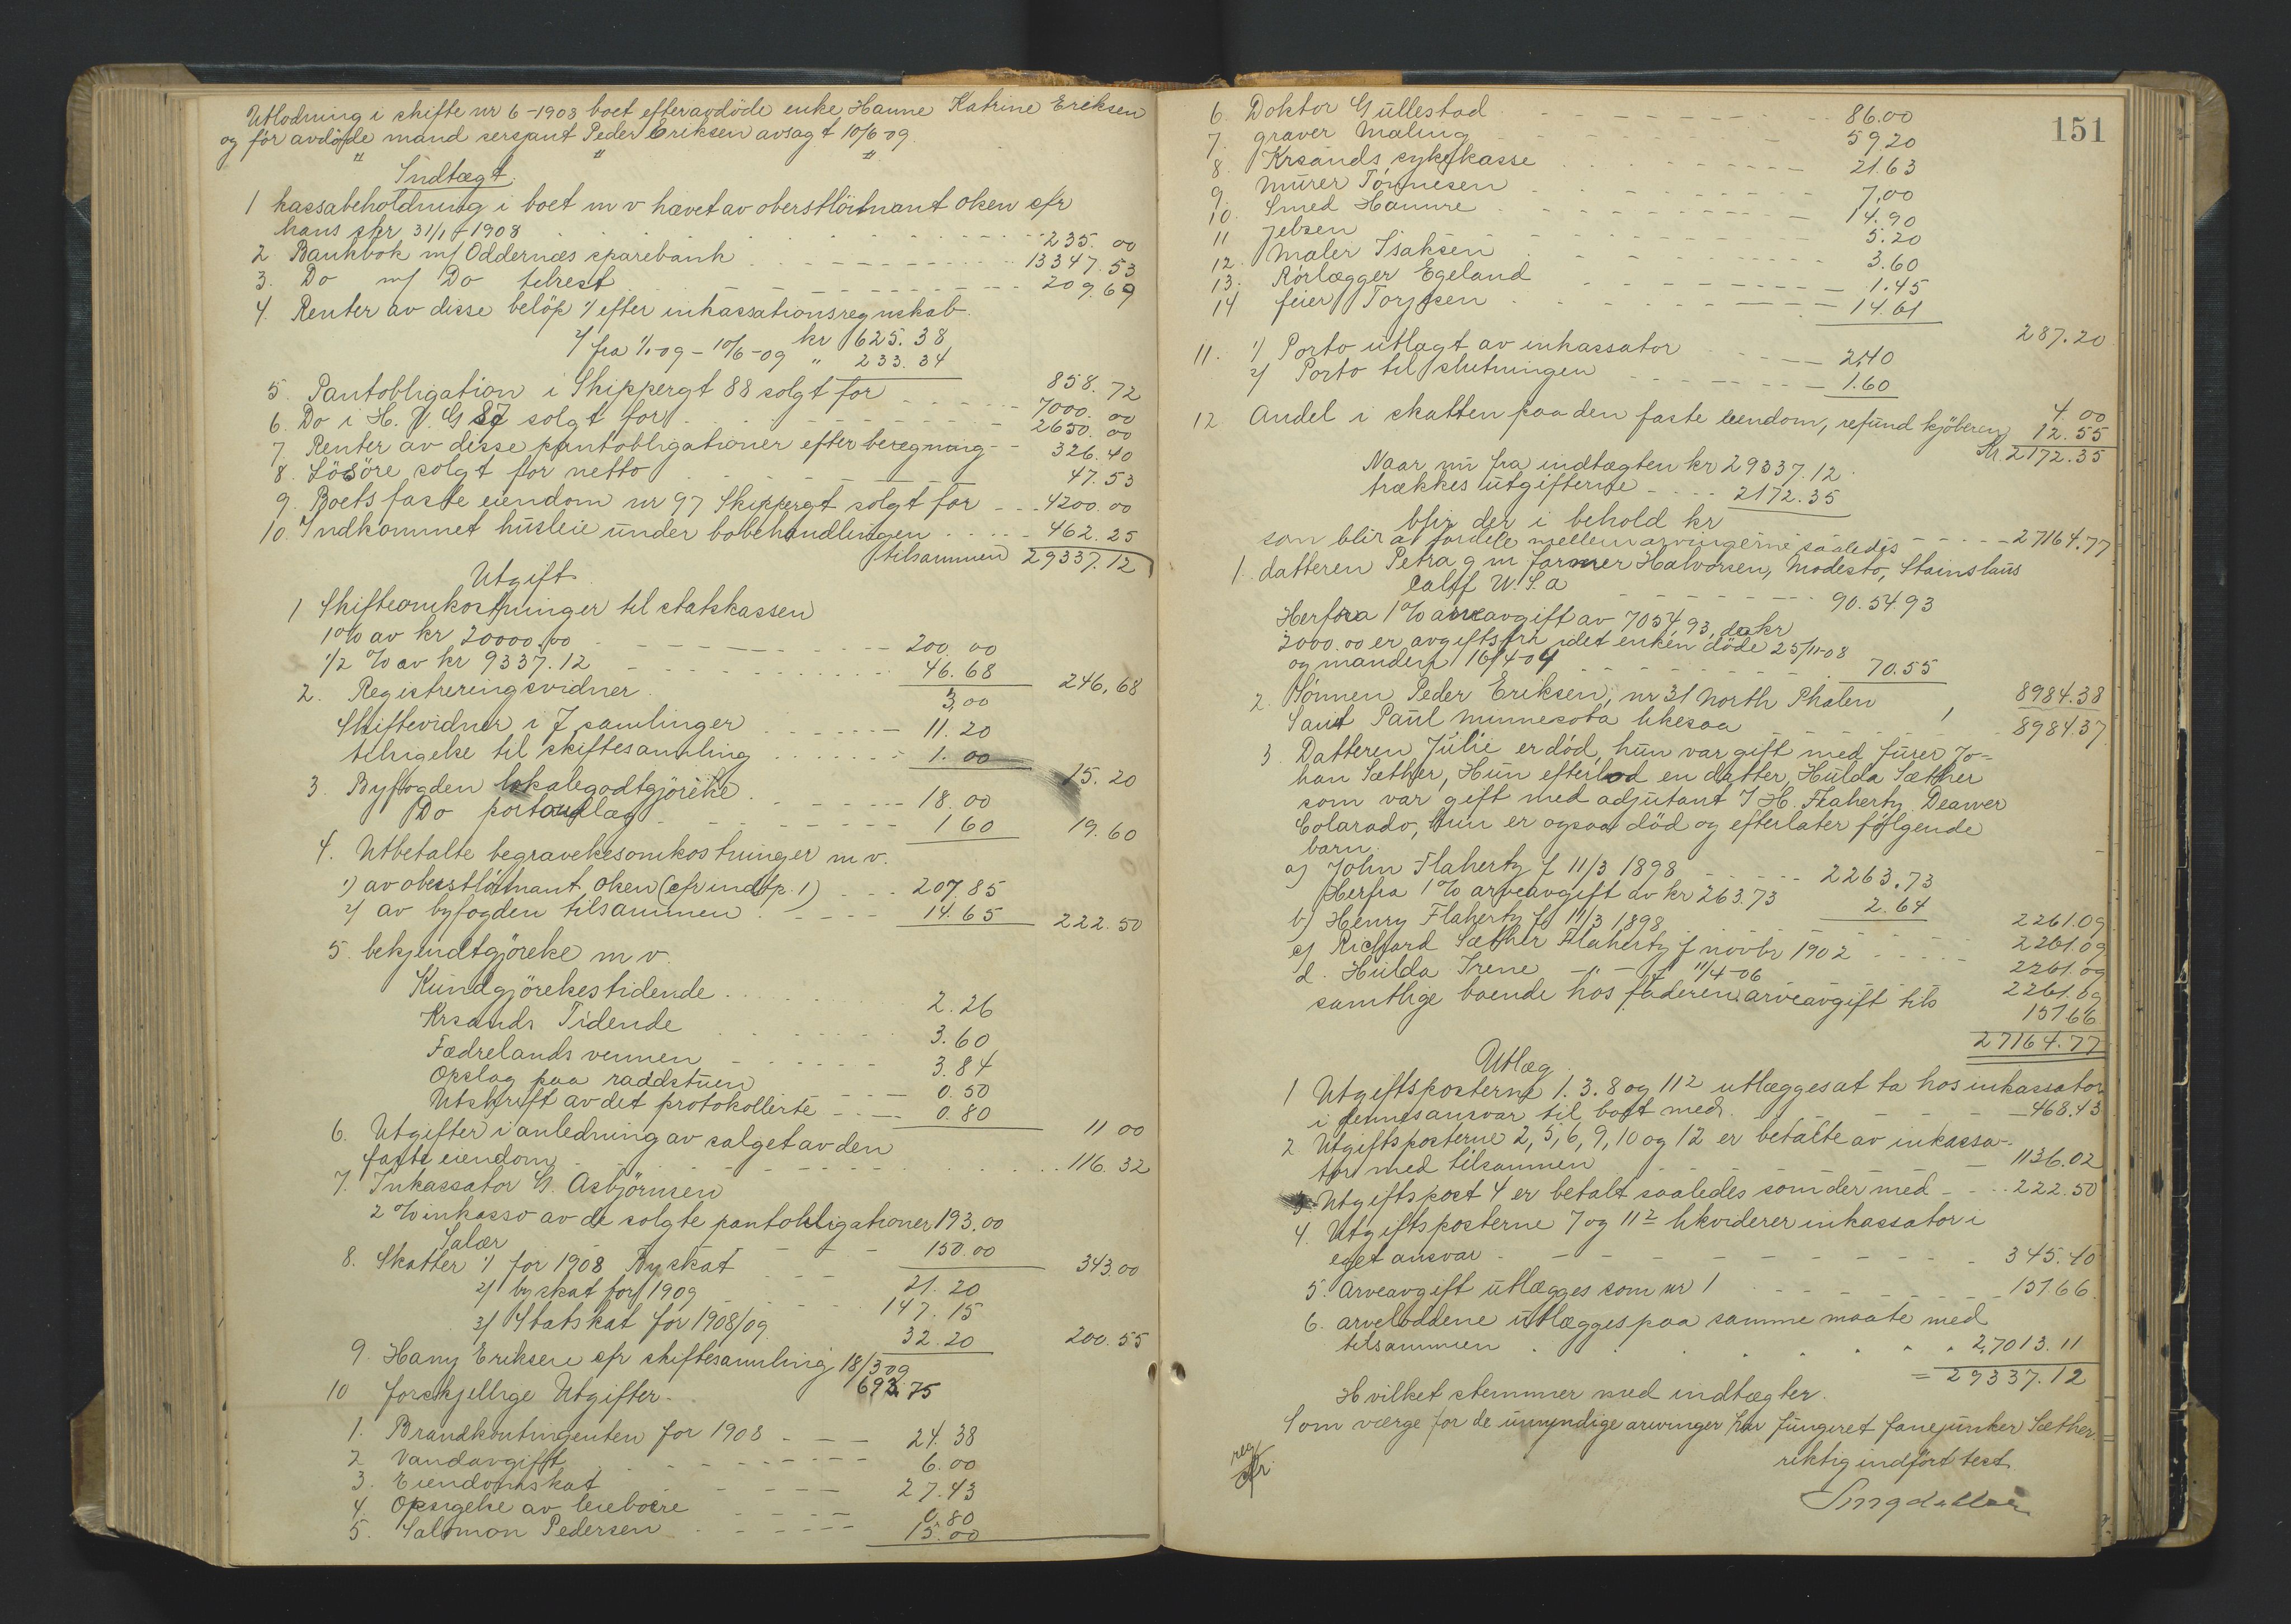 Utlodning i skifte nr 6-1908 boet efter avdöde enke Hanne Katrine Eriksen
og för avdöde mand sersjant Peder Eriksen avsagt 10/6 09.
" " "
Indtægt.
1 kassabeholdning i boet m v hævet av oberstlöitnant Oken cfr
hans skr 31/1-1908 235.00
2 Bankbok m/ Oddernæs sparebank 13347.53
3. Do m/ Do tilrest 209.69
4. Renter av disse belöp 1/ efter inkassationsregnskab
kr 625.38
2/ fra 1/1-09-10/6-09 " 233.34
858.72
5. Pantobligation i Skippergt 88 solgt for 7000.00
6. Do i H. V. G 87 solgt for 2650.00
7. Renter av disse pantobligationer efter beregning 326.40
8. Lösöre solgt for netto 47.53
9. Boets faste eiendom nr 97 Skippergt solgt for 4200.00
10. Indkommet husleie under bobehandlingen 462.25
tilsammen 29337.12
Utgift.
1 Skifteomkostninger til statskassen
1 % av kr 20000.00 200.00
1/2 % av kr 9337.12 46.68
246,68
2. Registreringsvidner 3,00
Skiftevidner i 7 samlinger 11.20
tilsigelse til skiftesamling 1.00
15.20
3. Byfogden lokalegodtgjörelse 18.00
Do portoutlæg 1 60
19.60
4. Utbetalte begravelsesomkostninger m v.
1) av oberstlöitnant Oken (cfr indtp. 1) 207.85
2/ av byfogden tilsammen 14.65
222.50
5 bekjendtgjörelse m v.
Kundgjörelsestidende 2.26
Krsands Tidende 3.60
Fædrelandsvennen 3.84
Opslag paa raadstuen 0.50
Utskrift av det protokollerte 0.80
11 00
6. Utgifter i anledning av salget av den
faste eiendom 116.32
7. Inkassator G. Asbjörnsen
2 % inkasso av de solgte pantobligationer 193.00
Salær 150.00
343.00
8. Skatter 1/ for 1908 Byskat 21.20
2/ byskat for 1909 147.15
3/ Statskat for 1908/09 32.20
200.55
9. Hany Eriksen cfr skiftesamling 18/3 09
693.75
10 forskjellige Utgifter.
1. Brandkontingenten for 1908 24.38
2 Vandavgift 6.00
3. Eiendomskat 27.43
4. Opsigelse av leieboere 0.80
5. Salomon Pedersen 15.00
151
6. Doktor Gullestad 86.00
7. graver Maling 59.20
8. Krsands sykekasse 21.63
9. murer Tönnesen 7,00
10. Smed Hamre 14.90
11 Jebsen 5.20
12. Maler Isaksen 3.60
13. Rörlægger Egeland 1.45
14 feier Torjesen 14.61
287.20
11. 1) Porto utlagt av inkassator 2,40
2/ Porto til slutningen 1.60
4.00
12 Andel i skatten paa den faste eiendom, refund kjöberen 12.55
Kr. 2172.35
Naar nu fra indtægten kr 29337.12
trækkes utgifterne 2172.35
blir der i behold kr 27164.77
som blir at fordele mellem arvingerne saaledes
1. datteren Petra g m farmer Halvorsen, Modesto, Stainslaus
Calif U.S.a 90.54.93
Herfra 1 % arveavgift av 7054,93, da kr
2000.00 er avgiftsfri idet enken döde 25/11-08
og manden 16/4-04 70.55
8984.38
2. Sönnen Peder Eriksen, nr 31 North Phalen
Saint Paul Minnesota likesaa 8984.37
3. Datteren Julie er död, hun var gift med furer Jo-
han Sæther, Hun efterlod en datter, Hulda Sæther
som var gift med adjutant J H. Flaherty Deanver
Colarado, hun er ogsaa död og efterlater fölgende
barn.
a) John Flaherty f 11/3 1898 2263.73
Herfra 1 % arveavgift av kr 263.73 2.64
2261.09
b) Henry Flaherty f 11/3 1898 2261.09
c) Richard Sæther Flaherty f novbr 1902 2261.09
d. Hulda Irene - " - f 11/4-06 2261.09
samtlige boende hos faderen, arveavgift tils 151 66
27164.77
Utlæg.
1 Utgiftsposterne 1. 3. 8 og 11² utlægges at ta hos inkassator
i dennes ansvar til boet med 468.43
2 Utgiftsposterne 2, 5, 6, 9, 10 og 12 er betalte av inkassa-
tor med tilsammen 1136.02
3. Utgiftspost 4 er betalt saaledes som der med 222.50
4. Utgiftsposterne 7 og 11² likviderer inkassator i
eget ansvar 345.40
5. Arveavgift utlægges som nr 1 151.66
6. arveloddene utlægges paa samme maate med
tilsammen 27013.11
= 29337.12
Hvilket stemmer med indtægter.
Som værge for de umyndige arvinger har fungeret fanejunker Sæther.
riktig indfört test.
reg
cfr.